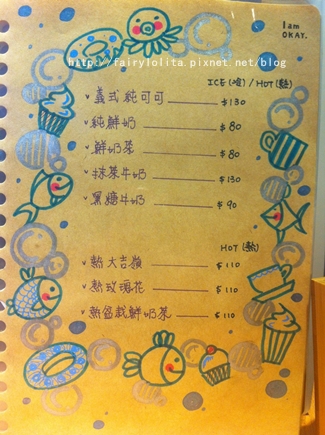 I am
OKAY.
http://fairylolita.pixnet.net/blog
ICE(冷) / HOT(熱)
義式純可可 $130
純鮮奶 $80
鮮奶茶 $80
抹茶牛奶 $130
黑糖牛奶 $90
HOT(熱)
熱大吉嶺 $110
熱玫瑰花 $110
熱盆栽鮮奶茶 $110